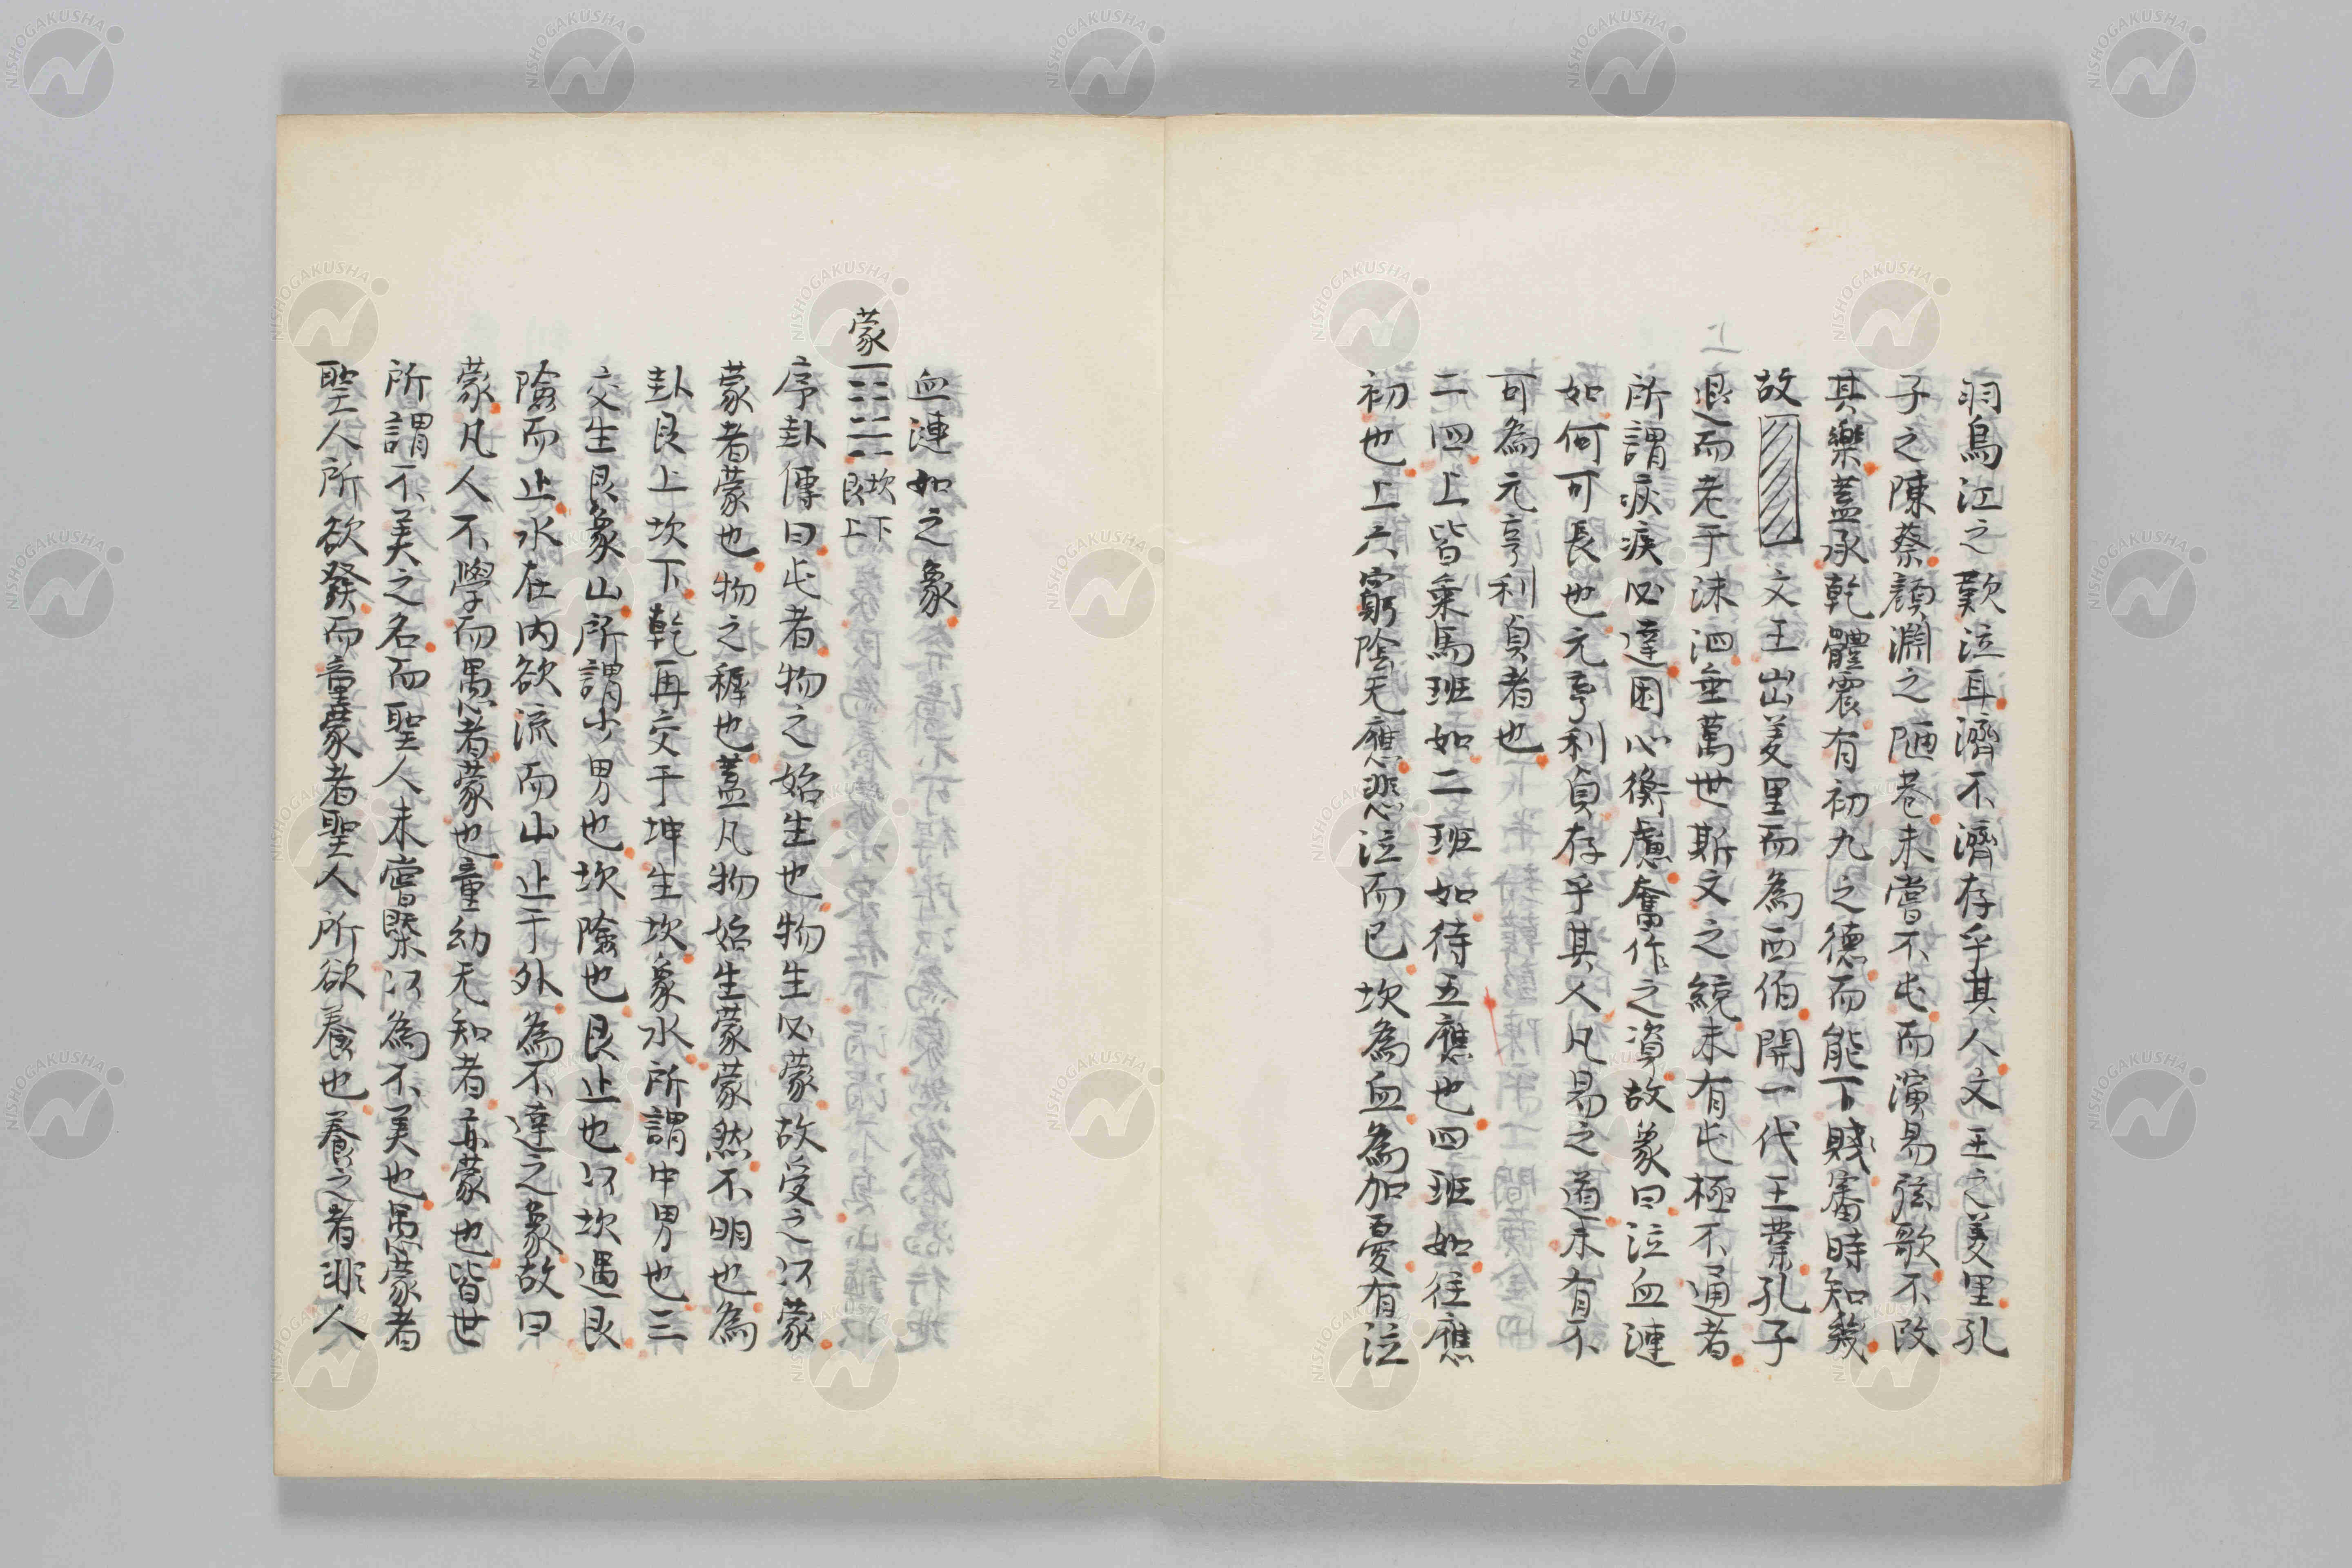 羽烏江之歎泣耳濟不濟存乎其人文王之羑里孔
子之陳蔡顔淵之陋巷未嘗不屯而演易弦歌不改
其樂蓋承乾體震有初九之德而能下賤審時知幾
故文王出羑里而為西伯開一代王業孔子
退而老于洙泗垂萬世斯文之統未有屯極不通者
所謂疢疾必達困心衡慮奮作之資故象曰泣血漣
如何可長也元亨利貞存乎其人凡易之道未有不
可為元亨利貞者也
二四上皆乗馬班如二班如待五應也四班如往應
初也上六窮陰无應悲泣而已坎為血為加憂有泣
血漣如之象
蒙 坎下艮上
序卦傳曰屯者物之始生也物生必蒙故受之以蒙
蒙者蒙也物之穉也蓋凡物始生蒙蒙然不明也為
卦艮上坎下乾再交于坤生坎象水所謂中男也三
交生艮象山所謂少男也坎險也艮止也以坎遇艮
險而止水在内欲流而山止于外為不達之象故曰
蒙凡人不學而愚者蒙也童幼无知者亦蒙也皆世
所謂不美之名而聖人未嘗槩以為不美也愚蒙者
聖人所欲發而童蒙者聖人所欲養也養之者非人
NISHOGAKUSHA